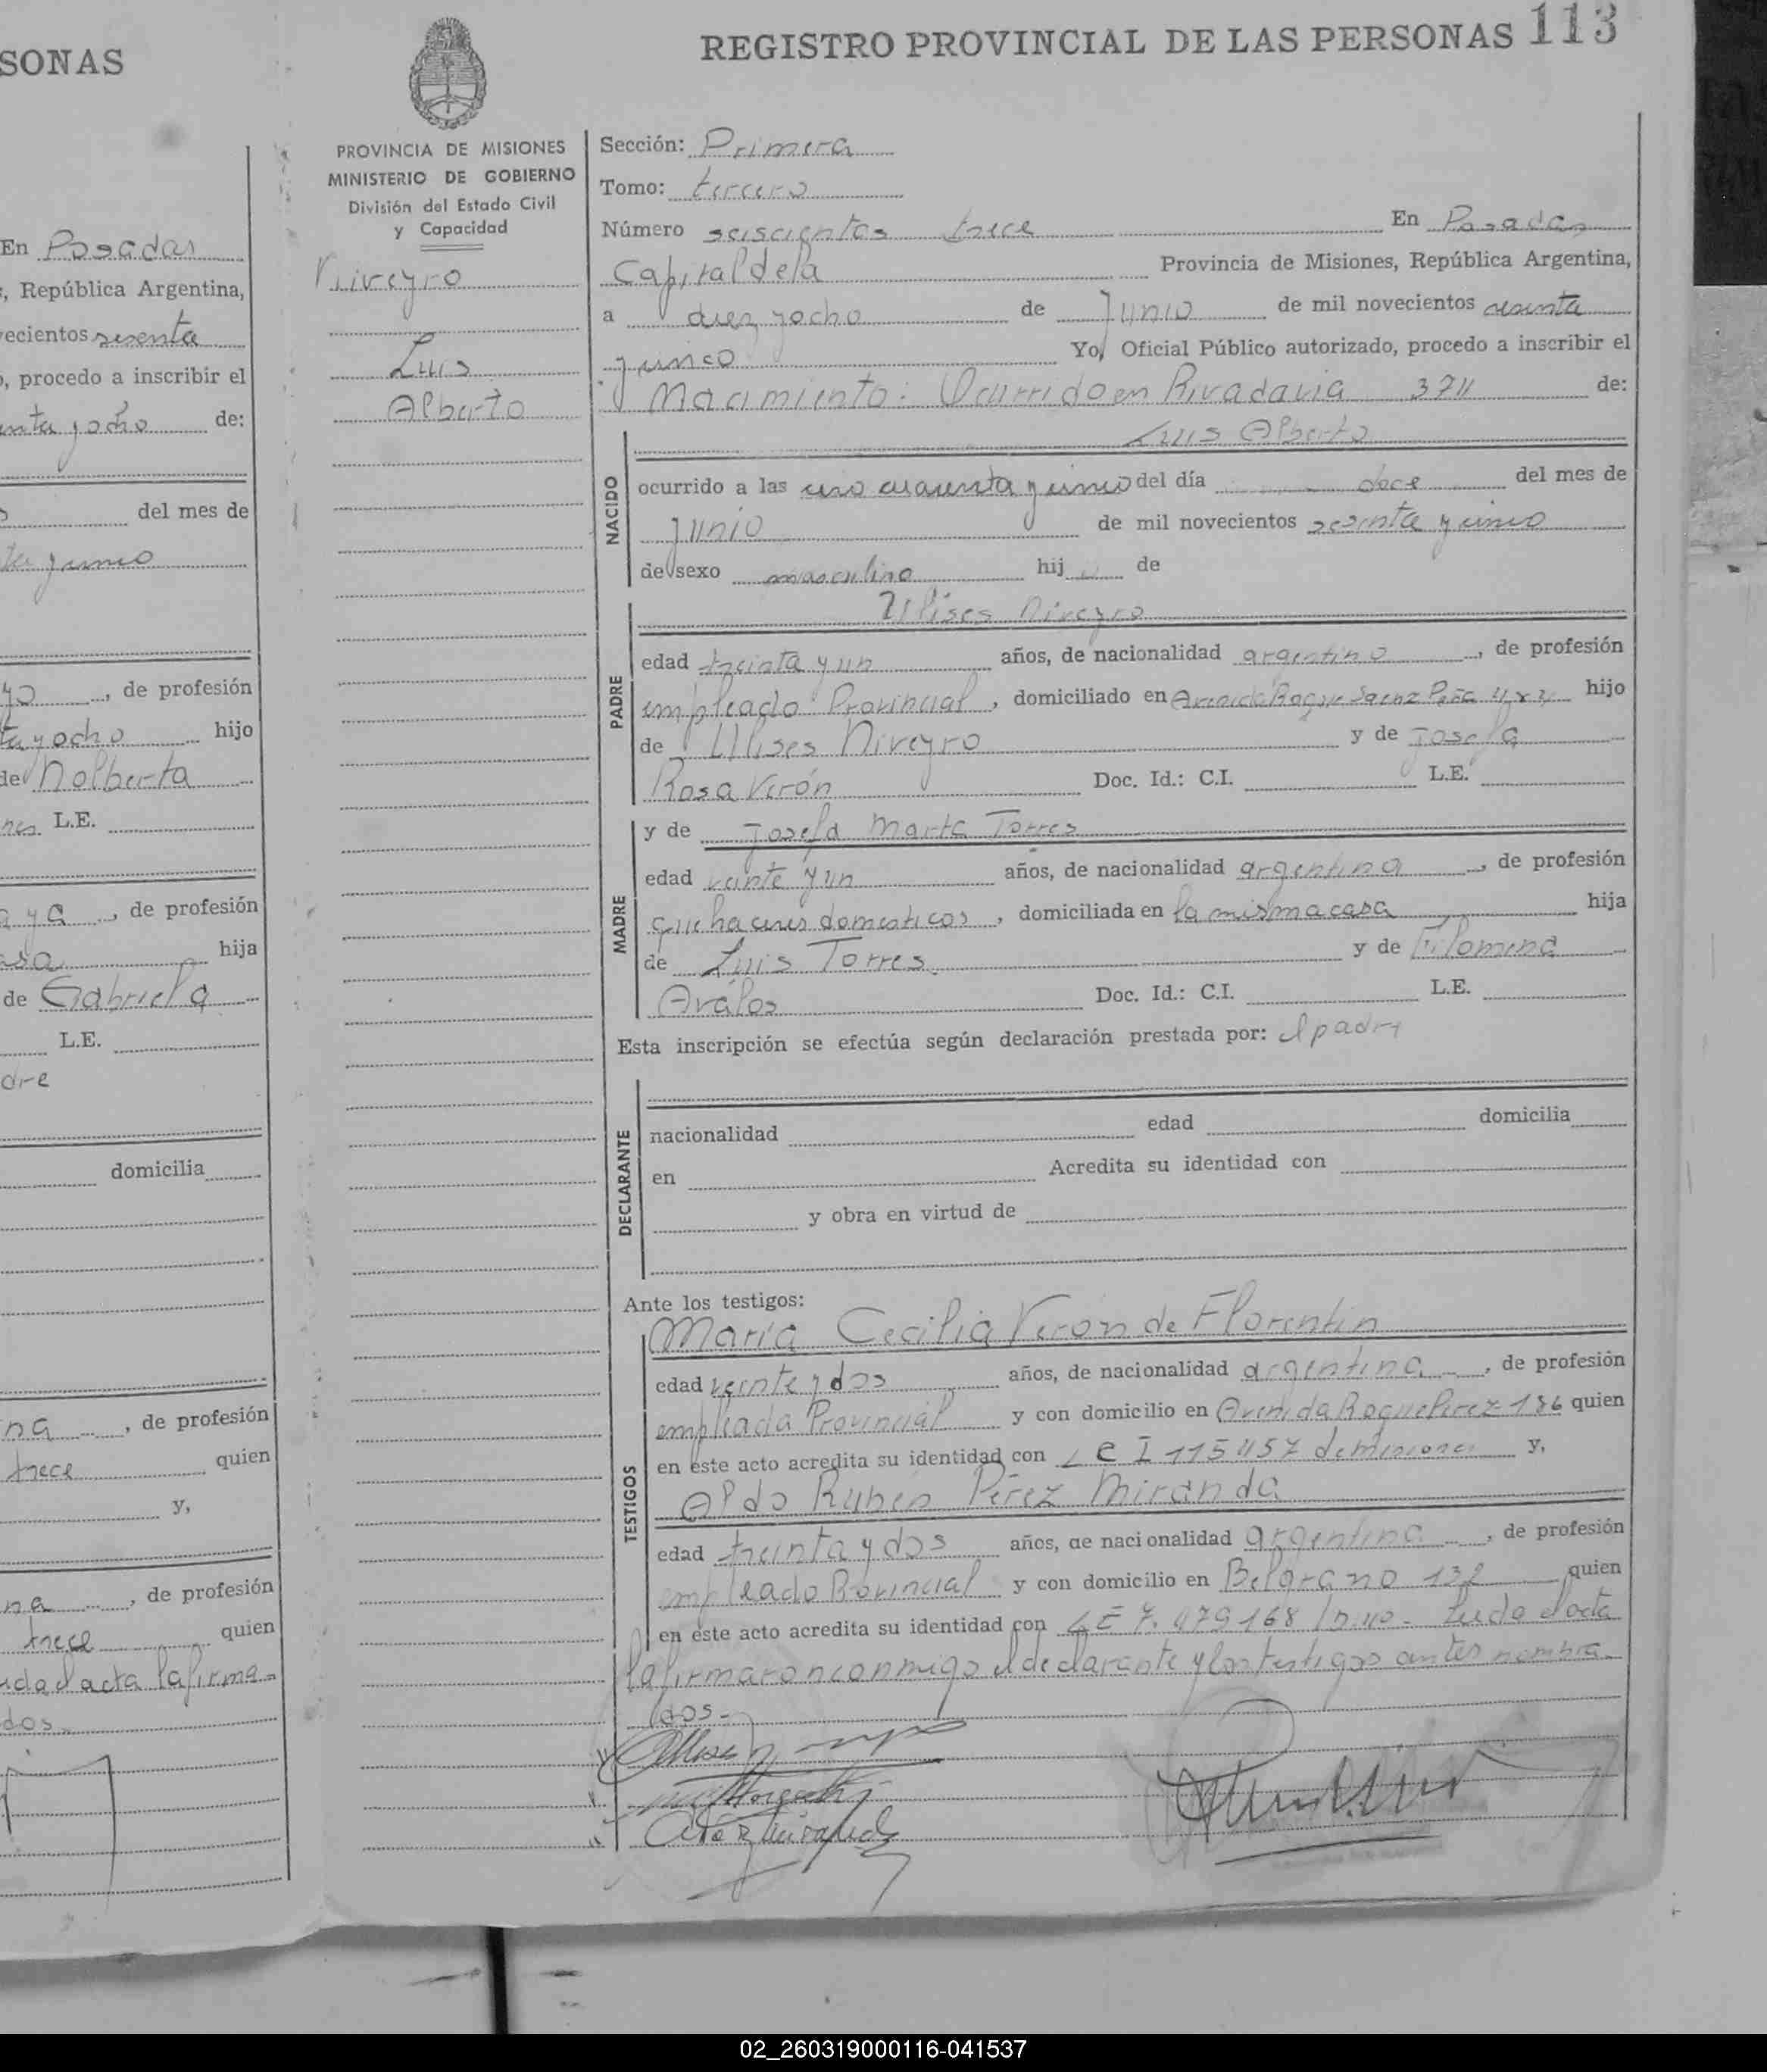 SONAS
En Posadas
, República Argentina,
ecientos sesenta
, procedo a inscribir el
nta y ocho de:
del mes de
ta y cinco
de profesión
ta y ocho hijo
de Nolberta
L.E.
, de profesión
hija
de Gabriela
L.E.
dre
domicilia
na , de profesión
trece quien
y,
na , de profesión
trece quien
da el acta la firma-
dos-
REGISTRO PROVINCIAL DE LAS PERSONAS 113
PROVINCIA DE MISIONES
MINISTERIO DE GOBIERNO
División del Estado Civil
y Capacidad
Niveyro
Luis
Alberto
Sección: Primera
Tomo: tercero
Número seiscientos trece En Posadas
Capital de la Provincia de Misiones, República Argentina,
a diez y ocho de Junio de mil novecientos sesenta
y cinco Yo, Oficial Público autorizado, procedo a inscribir el
Nacimiento: Ocurrido en Rivadavia de:
Luis Alberto
NACIDO
ocurrido a las uno cuarenta y cinco del día doce del mes de
Junio de mil novecientos sesenta y cinco
de sexo masculino hijo de
PADRE
Ulises Niveyro
edad treinta y un años, de nacionalidad argentino, de profesión
empleado Provincial, domiciliado en Avenida Roque Saenz Peña hijo
de Ulises Niveyro y de Josefa
Rosa Verón Doc. Id.: C.I. L.E.
MADRE
y de Josefa Marta Torres
edad veinte y un años, de nacionalidad argentina, de profesión
quehaceres domesticos, domiciliada en la misma casa hija
de Luis Torres y de Filomena
Avalos Doc. Id.: C.I. L.E.
Esta inscripción se efectúa según declaración prestada por: el padre
DECLARANTE
nacionalidad edad domicilia
en Acredita su identidad con
y obra en virtud de
Ante los testigos:
TESTIGOS
María Cecilia Verón de Florentin
edad veinte y dos años, de nacionalidad argentina, de profesión
empleada Provincial y con domicilio en Avenida Roque Perez 186 quien
en este acto acredita su identidad con 115457 de Misiones y,
Aldo Ruben Pérez Miranda
edad treinta y dos años, de nacionalidad argentina, de profesión
empleado Provincial y con domicilio en Belgrano 132 quien
en este acto acredita su identidad con LE 7.479168 Leida el acta
la firmaron conmigo el declarante y los testigos antes nombra-
dos-
02_260319000116-041537